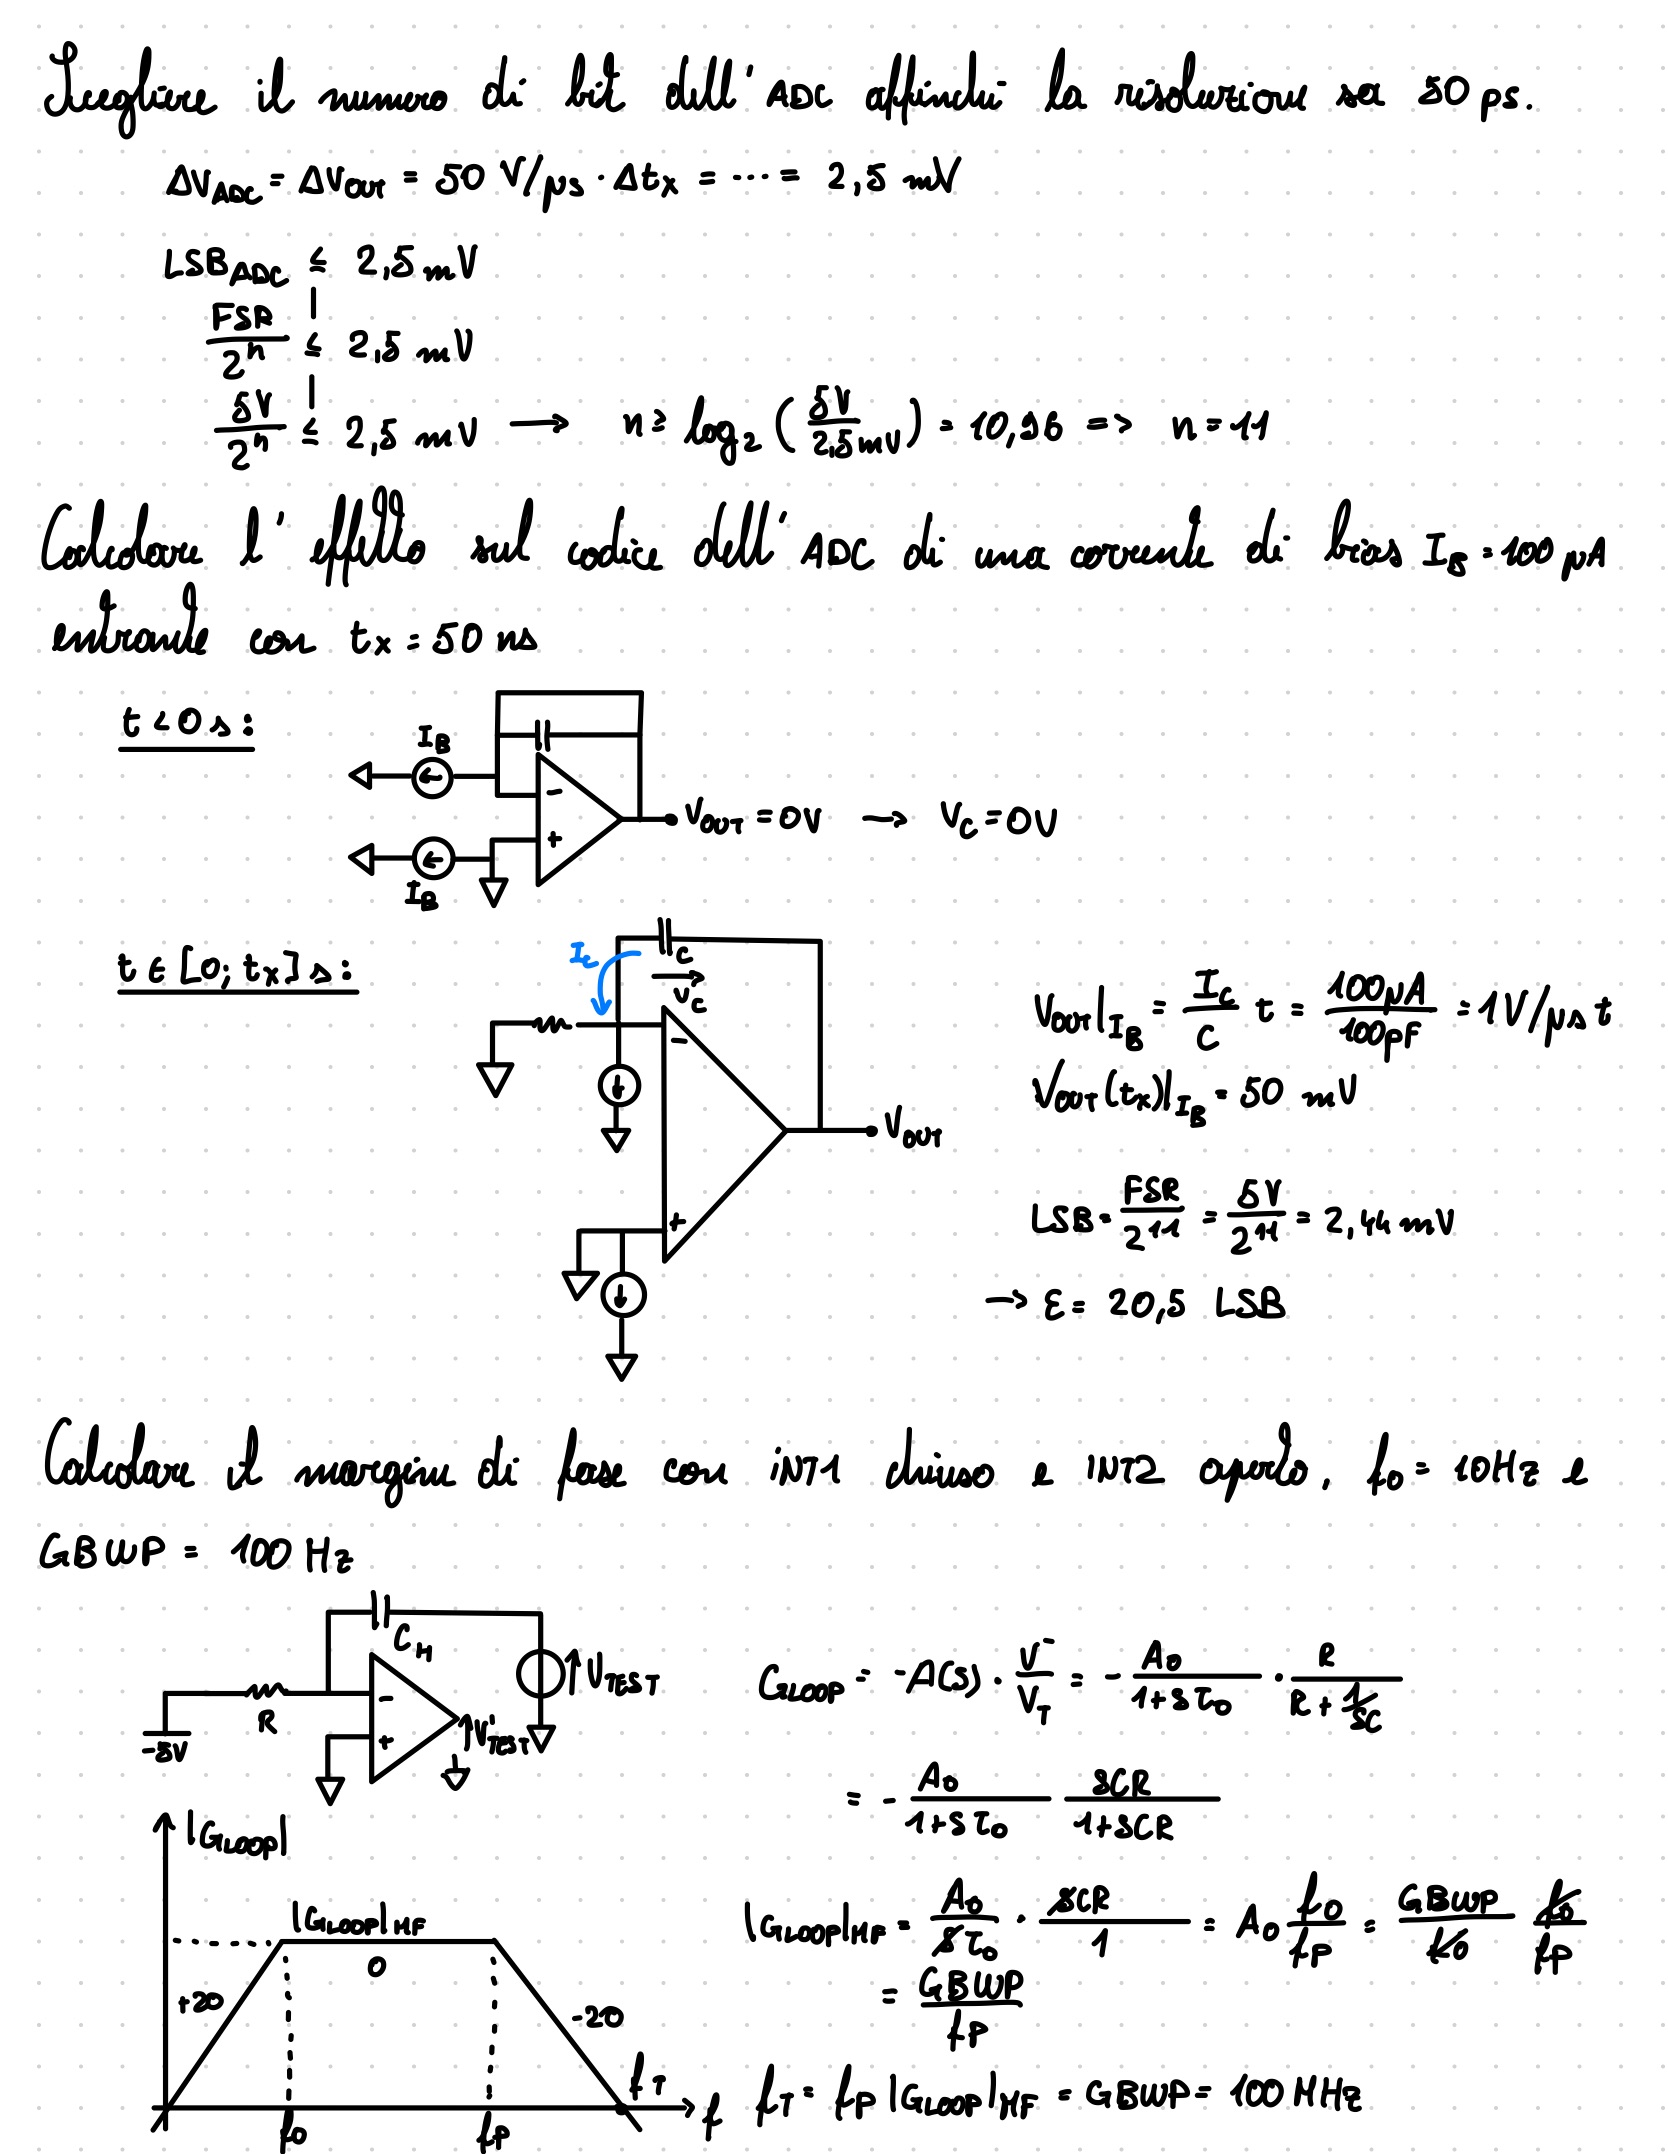 Scegliere il numero di bit dell'ADC affinché la risoluzione sia 50 ps.
ΔV_ADC = ΔV_OUT = 50 V/μs · Δt_x = ··· = 2,5 mV
LSB_ADC ≤ 2,5 mV
FSR/2^n ≤ 2,5 mV
5V/2^n ≤ 2,5 mV → n ≥ log_2 (5V/2,5mV) = 10,96 => n = 11
Calcolare l'effetto sul codice dell'ADC di una corrente di bias I_B = 100 μA
entrante con t_x = 50 ns
t < 0 s:
I_B
-
+
I_B
V_OUT = 0V → V_C = 0V
t ∈ [0; t_x] s:
I_C
C
V_C
-
+
V_OUT
V_OUT|_I_B = I_C/C t = 100μA/100pF = 1 V/μs t
V_OUT(t_x)|_I_B = 50 mV
LSB = FSR/2^11 = 5V/2^11 = 2,44 mV
→ ε = 20,5 LSB
Calcolare il margine di fase con INT1 chiuso e INT2 aperto, f_0 = 10Hz e
GBWP = 100 Hz
C_H
R
-5V
-
+
V'_TEST
V_TEST
G_LOOP = -A(s) · V^-/V_T = - A_0/(1+sτ_0) · R/(R + 1/sC)
= - A_0/(1+sτ_0) sCR/(1+sCR)
|G_LOOP|
|G_LOOP|_MF
0
+20
-20
f_T
f
f_0
f_P
|G_LOOP|_MF = A_0/(sτ_0) · sCR/1 = A_0 f_0/f_P = GBWP/f_0 f_0/f_P
= GBWP/f_P
f_T = f_P |G_LOOP|_MF = GBWP = 100 MHz